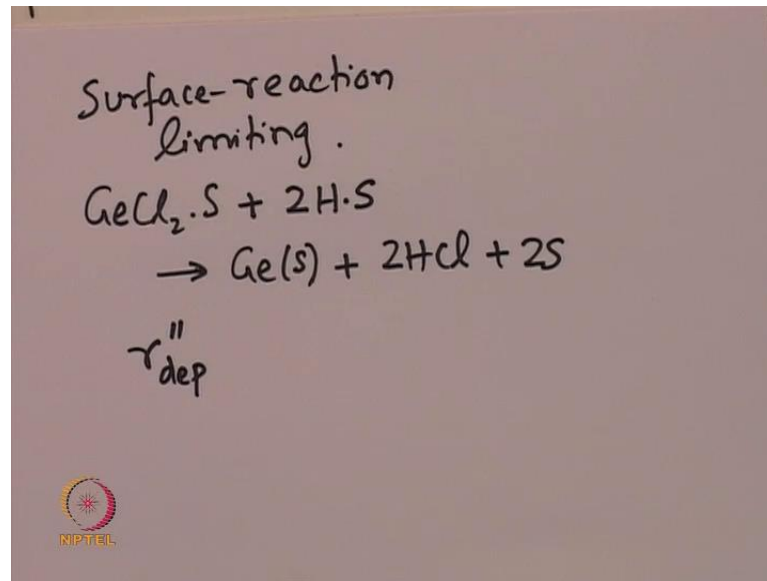 Surface-reaction
limiting.
GeCl₂.S + 2H.S
→ Ge(s) + 2HCl + 2S
r''dep
NPTEL